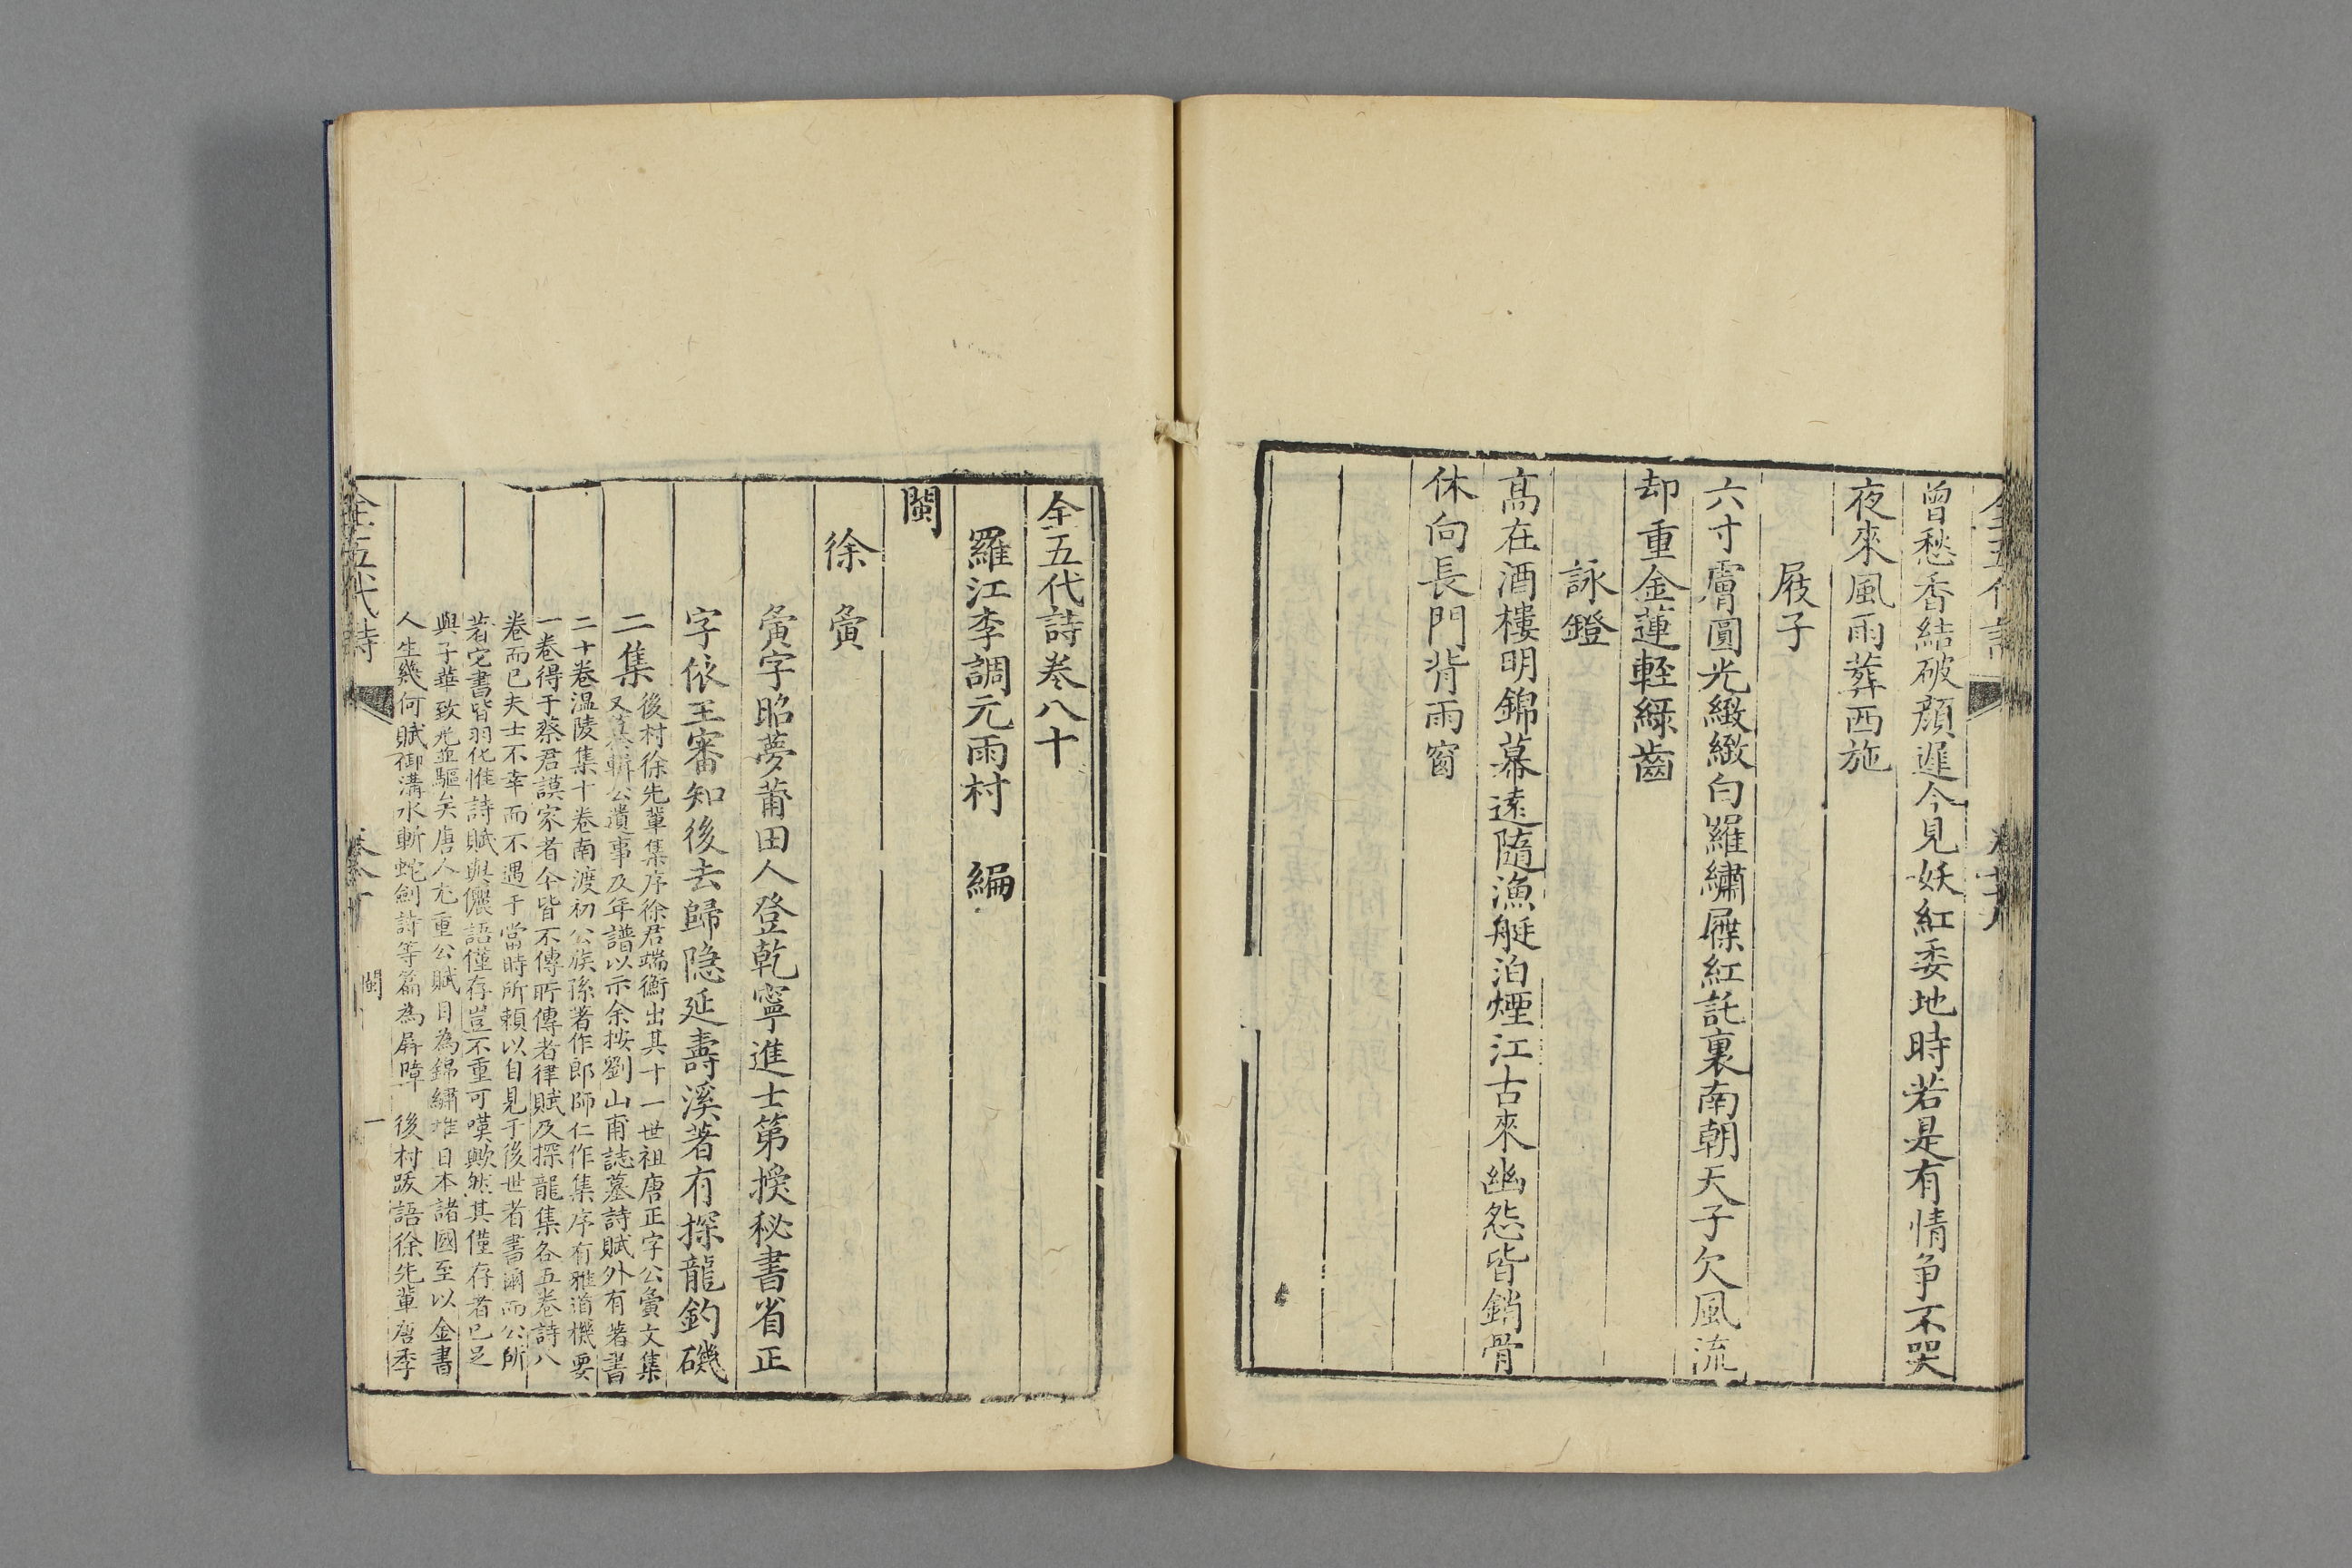 曾愁香結破顏遲今見妖紅委地時若是有情爭不哭
夜來風雨葬西施
屐子
六寸膚圓光緻緻白羅繡屧紅託裏南朝天子欠風流
却重金蓮輕綠齒
詠鐙
高在酒樓明錦幕遠隨漁艇泊煙江古來幽怨皆銷骨
休向長門背雨窗
全五代詩卷八十
羅江李調元雨村 編
閩
徐夤
夤字昭夢莆田人登乾寧進士第授秘書省正
字依王審知後去歸隐延壽溪著有探龍釣磯
二集
後村徐先輩集序徐君端衡出其十一世祖唐正字公夤文集
又纂輯公遺事及年譜以示余按劉山甫誌墓詩賦外有著書
二十卷温陵集十卷南渡初公族孫著作郎師仁作集序有雅道機要
一卷得于蔡君謨家者今皆不傳所傳者律賦及探龍集各五卷詩八
卷而已夫士不幸而不遇于當時所頼以自見于後世者書爾而公所
著它書皆羽化惟詩賦與儷語僅存豈不重可嘆歟然其僅存者已足
與子華致光並驅矣唐人尤重公賦目為錦繡堆日本諸國至以金書
人生幾何賦御溝水斬蛇劍詩等篇為屏障 後村跋語徐先輩唐季
全五代詩
卷八十
閩
一